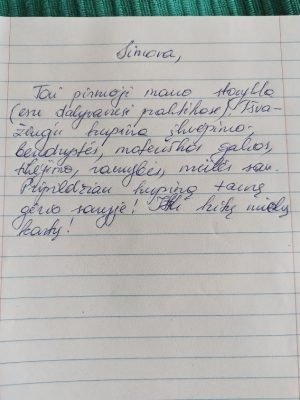 Simona,
Tai pirmoji mano stovykla
(esu dalyvavusi praktikose). Išva-
žiuoju kupina įkvėpimo,
bendrystės, moteriškos galios,
tikėjimo, ramybės, meilės sau.
Pripildžiau kupiną taurę
gėrio savyje! Iki kitų mielų
kartų!